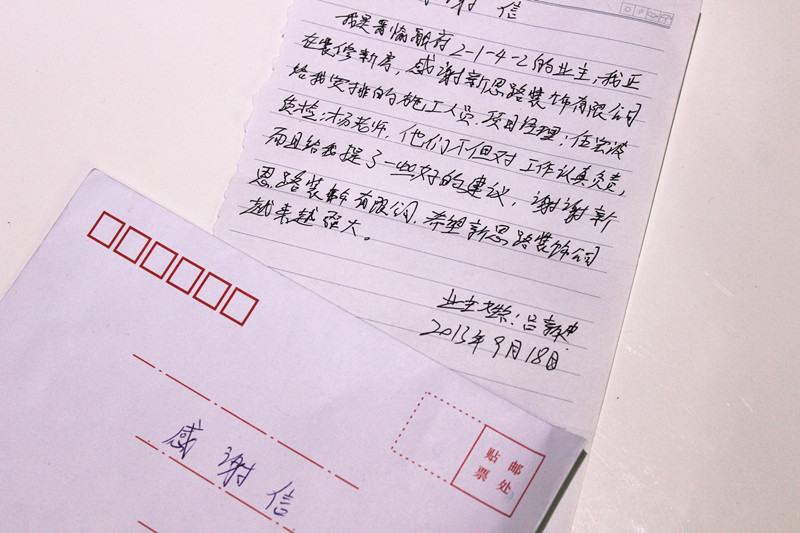 感谢信
我是 府2-1-4-2的业主,我正
在装修新房,感谢新思路装饰有限公司
给我安排的施工人员.项目经理:任宏波
质检:杨老师.他们不但对工作认真负责,
而且给我提了一些好的建议,谢谢新
思路装饰有限公司.希望新思路装饰公司
越来越强大。
业主 :吕
2013年9月18日
感谢信
贴邮
票处